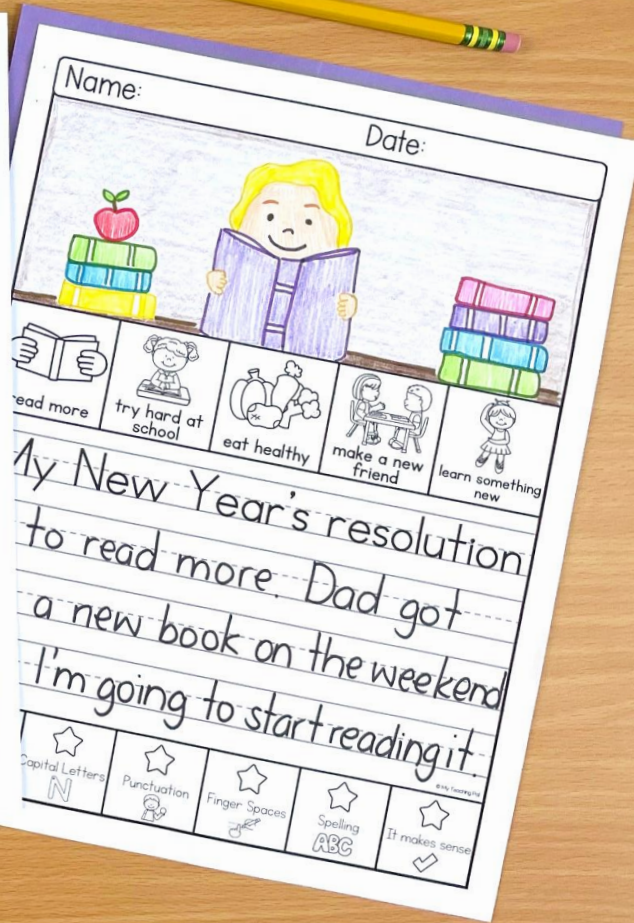 Name:
Date:
read more
try hard at school
eat healthy
make a new friend
learn something new
My New Year's resolution
to read more. Dad got
a new book on the weekend
I'm going to start reading it.
Capital Letters
N
Punctuation
Finger Spaces
Spelling
ABC
It makes sense